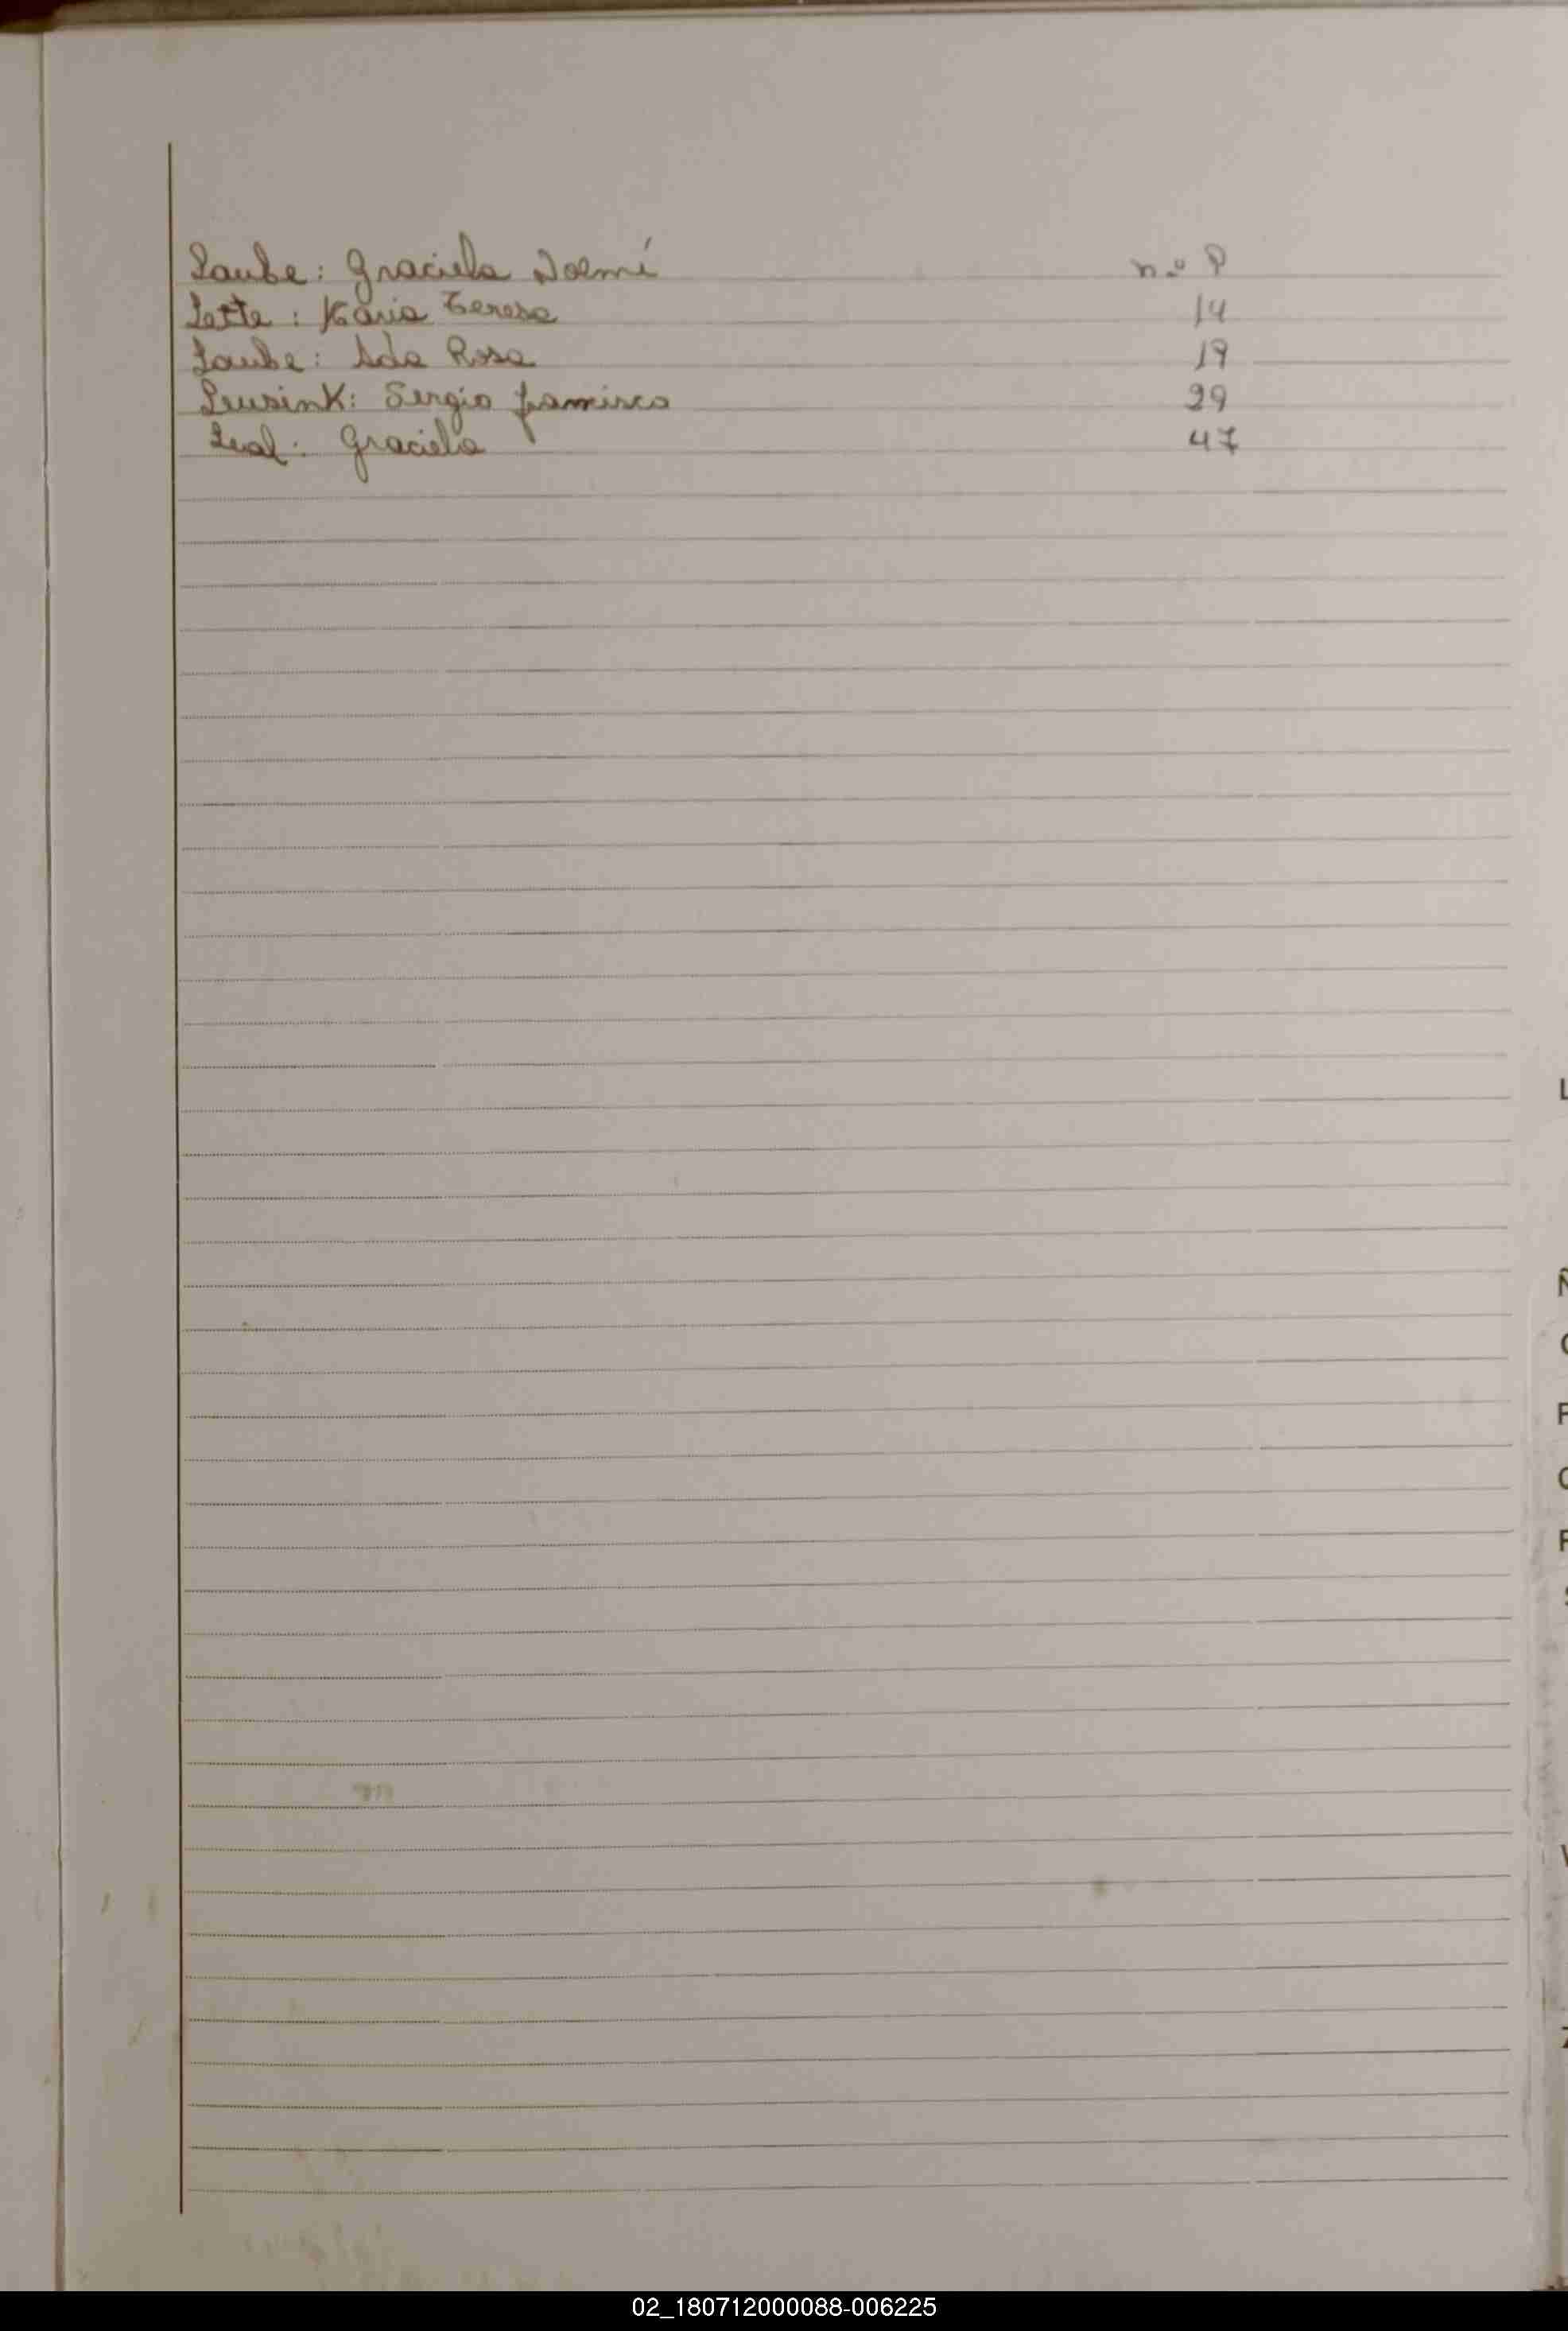 Laube: Graciela Noemí n.º 9
Lette: Maria Teresa 14
Laube: Ada Rosa 19
Leusink: Sergio 29
Leal: Graciela 47
L
Ñ
O
P
Q
R
S
V
Z
02_180712000088-006225